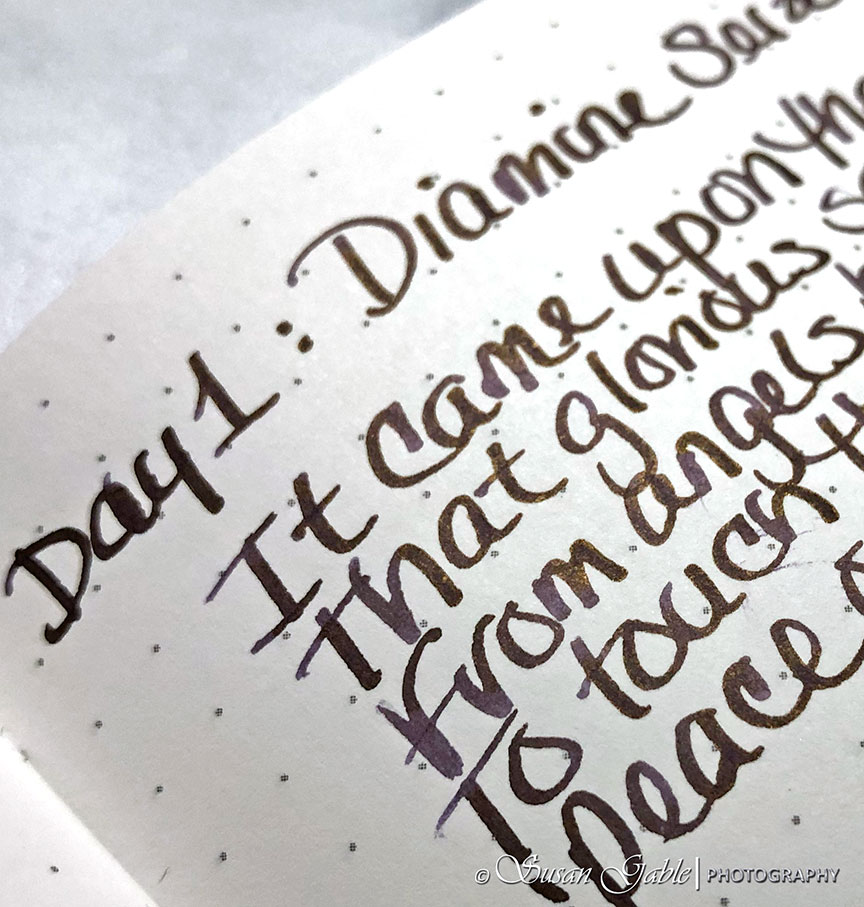 Day 1: Diamine
It came upon the
That glorious
From angels
To touch
peace
© Susan Gable | PHOTOGRAPHY